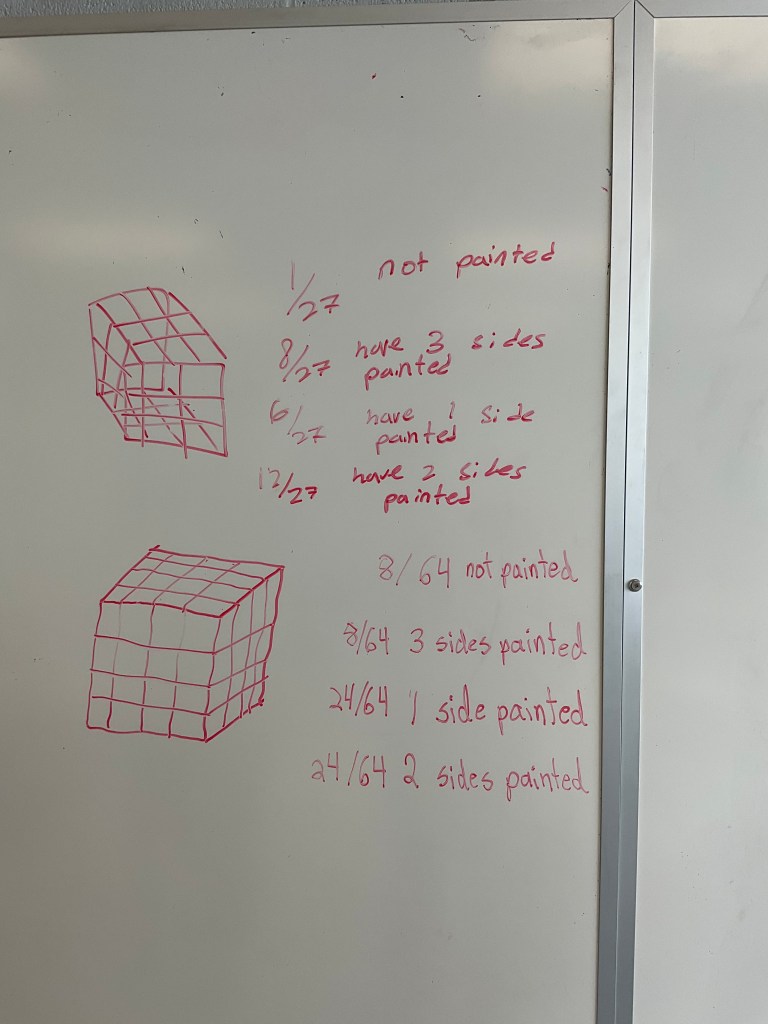 1/27 not painted
8/27 have 3 sides
painted
6/27 have 1 side
painted
12/27 have 2 sides
painted
8/64 not painted
8/64 3 sides painted
24/64 1 side painted
24/64 2 sides painted